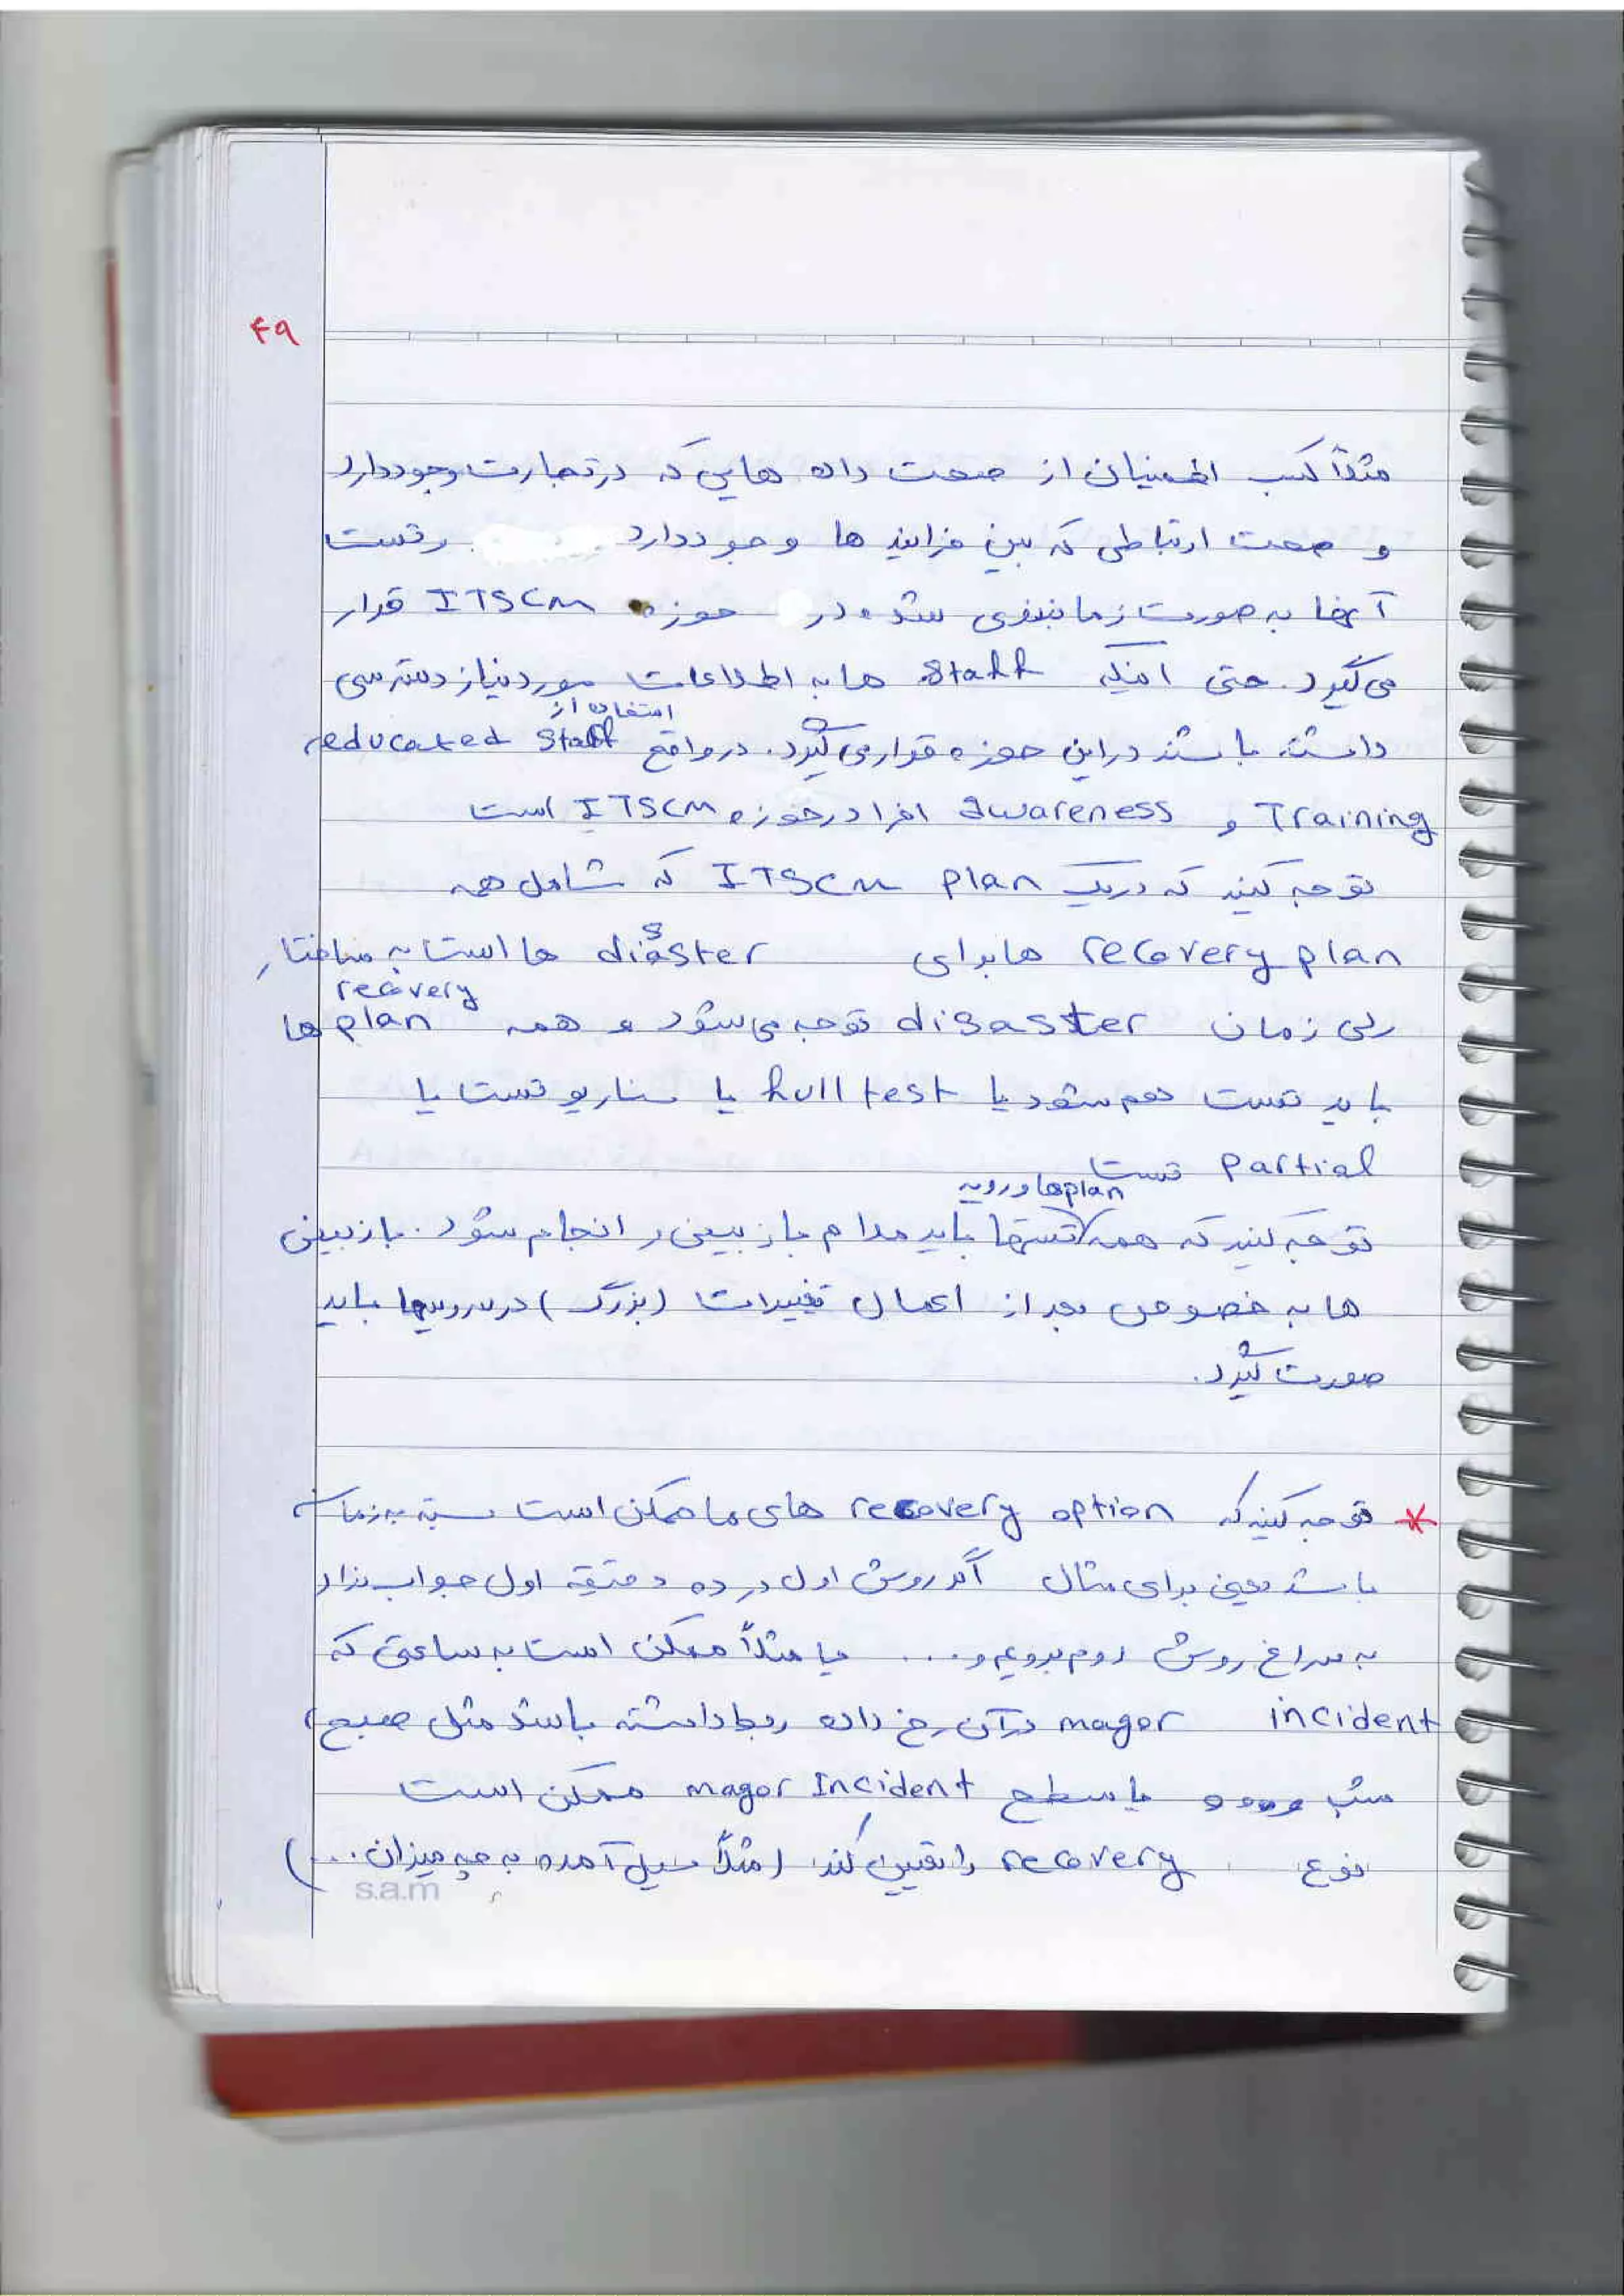 ۴۹
مثلاً کسب اطمینان از صحت داده هایی که در تجارت وجود دارد
و صحت ارتباطی که بین فرایند ها وجود دارد و تست
آنها به صورت زمانبندی شده در حوزه ITSCM قرار
می گیرد. حتی اینکه staff ها به اطلاعات مورد نیاز دسترسی
استفاده از
داشته باشند در این حوزه قرار می گیرد. در واقع educated staff،
Training و awareness افراد در حوزه ITSCM است
توجه کنید که در یک ITSCM plan که شامل همه
recovery plan ها برای disaster ها است به ساختار
recovery
زمان disaster توجه می شود و همه plan ها
باید تست هم شود یا full test یا سناریو تست یا
partial تست
plan ها و رویه
توجه کنید که همه تستها باید مدام بازبینی و انجام شود. بازبینی
ها به خصوص بعد از اعمال تغییرات (بزرگ) در سرویسها باید
صورت گیرد.
* توجه کنید که recovery option های ما ممکن است بسته به زمان
باشد یعنی برای مثال اگر روش اول در ده دقیقه اول جواب نداد
به سراغ روش دوم برویم و... یا مثلاً ممکن است به ساعتی که
incident magor در آن رخ داده ربط داشته باشد مثل صبح،
شب و یا سطح magor Incident ممکن است
نوع recovery را تعیین کند (مثلاً سیل آمده به چه میزان...)
s.a.m